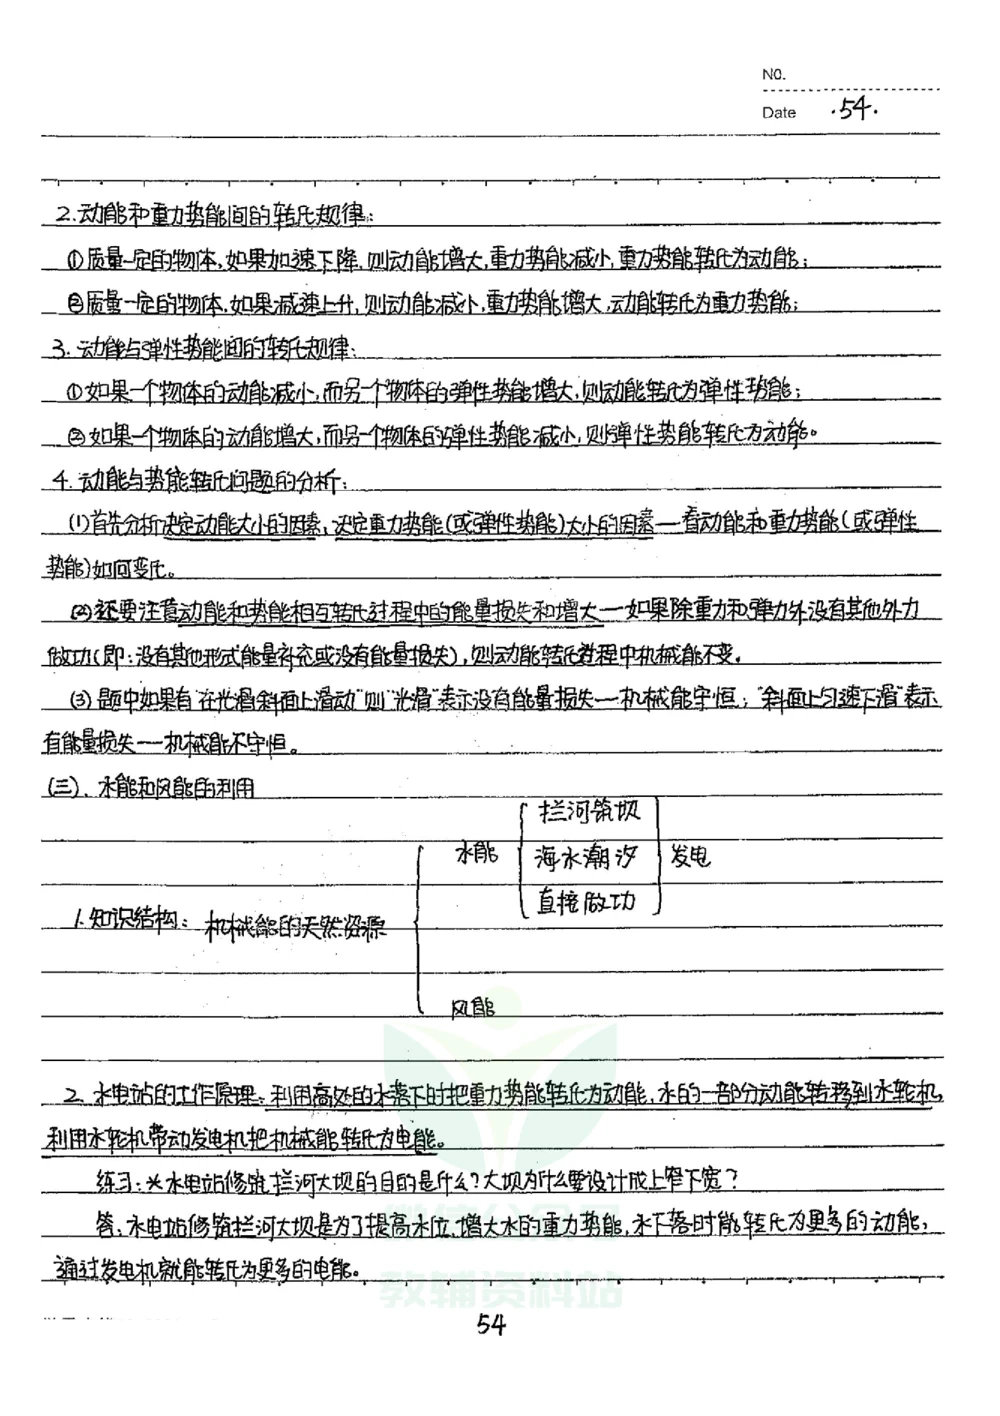 NO.
Date .54.
2.动能和重力势能间的转化规律:
①质量一定的物体,如果加速下降,则动能增大,重力势能减小,重力势能转化为动能;
②质量一定的物体,如果减速上升,则动能减小,重力势能增大,动能转化为重力势能;
3.动能与弹性势能间的转化规律:
①如果一个物体的动能减小,而另一个物体的弹性势能增大,则动能转化为弹性势能;
②如果一个物体的动能增大,而另一个物体的弹性势能减小,则弹性势能转化为动能。
4.动能与势能转化问题的分析:
(1)首先分析决定动能大小的因素,决定重力势能(或弹性势能)大小的因素——看动能和重力势能(或弹性
势能)如何变化。
(2)还要注意动能和势能相互转化过程中的能量损失和增大——如果除重力和弹力外没有其他外力
做功(即:没有其他形式能量补充或没有能量损失),则动能转化过程中机械能不变。
(3)题中如果有"在光滑斜面上滑动"则"光滑"表示没有能量损失——机械能守恒;"斜面上匀速下滑"表示
有能量损失——机械能不守恒。
(三).水能和风能的利用
拦河筑坝
水能 海水潮汐 发电
直接做功
1.知识结构: 机械能的天然资源
风能
2.水电站的工作原理:利用高处的水落下时把重力势能转化为动能,水的一部分动能转移到水轮机,
利用水轮机带动发电机把机械能转化为电能。
练习:※水电站修筑拦河大坝的目的是什么?大坝为什么要设计成上窄下宽?
答:水电站修筑拦河大坝是为了提高水位,增大水的重力势能,水下落时能转化为更多的动能,
通过发电机就能转化为更多的电能。
教辅资料站
54